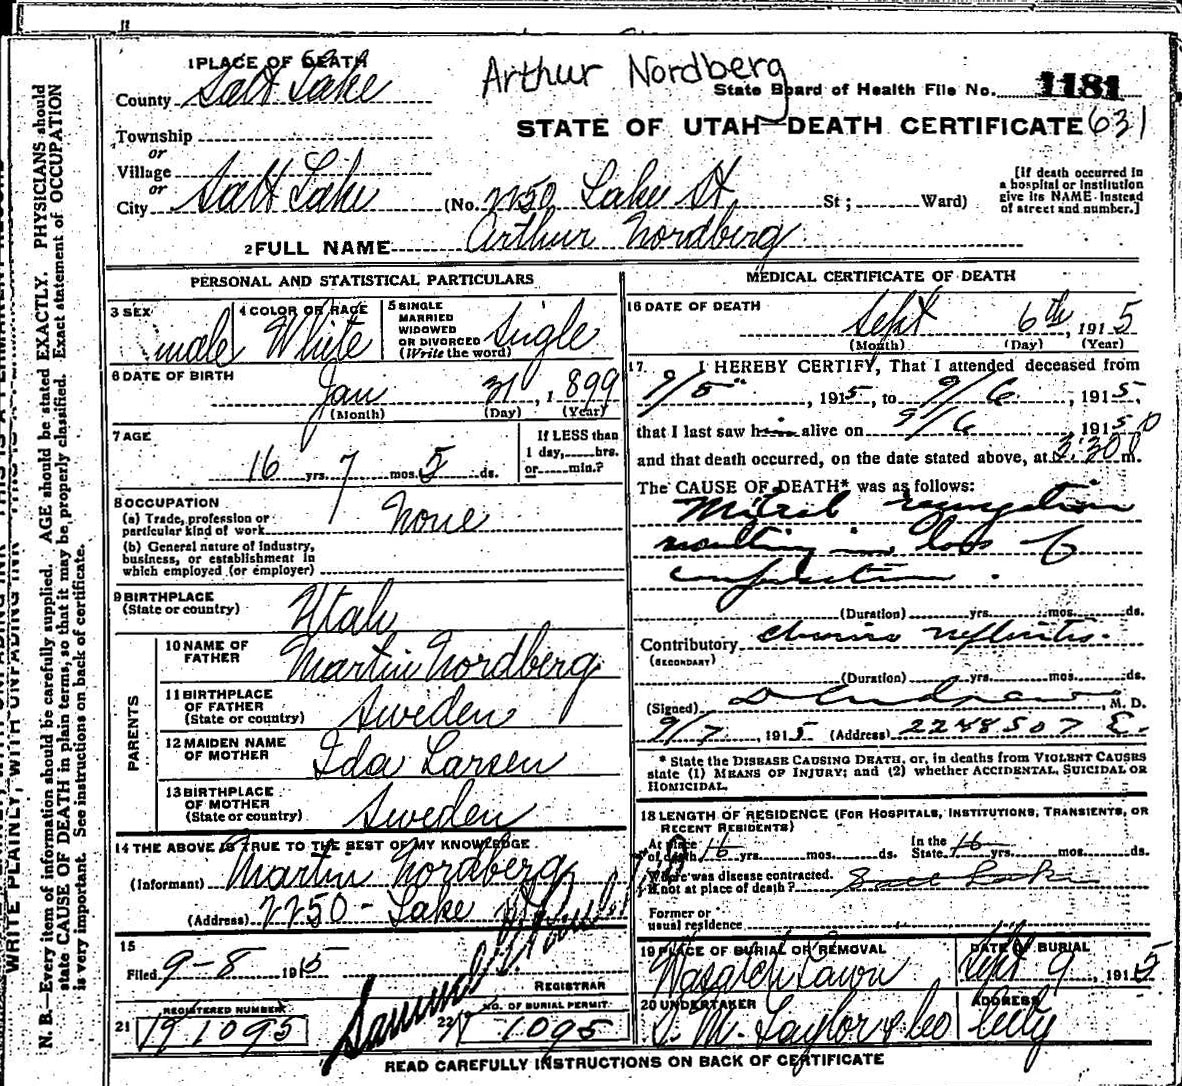 1 PLACE OF DEATH
Arthur Nordberg
County Salt Lake
State Board of Health File No. 1181
Township
STATE OF UTAH—DEATH CERTIFICATE 631
or
Village
or
City Salt Lake (No. 2250 Lake St. St; Ward)
[If death occurred in a hospital or institution give its NAME instead of street and number.]
2 FULL NAME Arthur Nordberg
PERSONAL AND STATISTICAL PARTICULARS
3 SEX male
4 COLOR OR RACE White
5 SINGLE MARRIED WIDOWED OR DIVORCED (Write the word) Single
6 DATE OF BIRTH
Jan 31, 1899
(Month) (Day) (Year)
7 AGE
16 yrs. 7 mos. 5 ds.
If LESS than 1 day, hrs. or min.?
8 OCCUPATION
(a) Trade, profession or particular kind of work None
(b) General nature of industry, business, or establishment in which employed (or employer)
9 BIRTHPLACE (State or country) Utah
PARENTS
10 NAME OF FATHER Martin Nordberg
11 BIRTHPLACE OF FATHER (State or country) Sweden
12 MAIDEN NAME OF MOTHER Ida Larsen
13 BIRTHPLACE OF MOTHER (State or country) Sweden
14 THE ABOVE IS TRUE TO THE BEST OF MY KNOWLEDGE
(Informant) Martin Nordberg
(Address) 2250 - Lake
15
Filed 9-8 1915
REGISTRAR
REGISTERED NUMBER
21
NO. OF BURIAL PERMIT
22 1095
MEDICAL CERTIFICATE OF DEATH
16 DATE OF DEATH
Sept 6th, 1915
(Month) (Day) (Year)
17. I HEREBY CERTIFY, That I attended deceased from
9/5, 1915, to 9/6, 1915,
that I last saw him alive on 9/6 1915
and that death occurred, on the date stated above, at 3:30 P m.
The CAUSE OF DEATH* was as follows:
Mitral regurgitation
resulting in loss of
compensation.
(Duration) yrs. mos. ds.
Contributory chronic nephritis.
(SECONDARY)
(Duration) yrs. mos. ds.
(Signed) M. D.
9/7, 1915 (Address) E.
* State the DISEASE CAUSING DEATH, or, in deaths from VIOLENT CAUSES state (1) MEANS OF INJURY; and (2) whether ACCIDENTAL, SUICIDAL OR HOMICIDAL.
18 LENGTH OF RESIDENCE (FOR HOSPITALS, INSTITUTIONS, TRANSIENTS, OR RECENT RESIDENTS)
At place of death 16 yrs. mos. ds. In the State 16 yrs. mos. ds.
Where was disease contracted, if not at place of death? Salt Lake
Former or usual residence
19 PLACE OF BURIAL OR REMOVAL
Wasatch Lawn
DATE OF BURIAL
Sept 9, 1915
20 UNDERTAKER
S. M. Taylor & Co
ADDRESS
City
READ CAREFULLY INSTRUCTIONS ON BACK OF CERTIFICATE
N. B.—Every item of information should be carefully supplied. AGE should be stated EXACTLY. PHYSICIANS should
state CAUSE OF DEATH in plain terms, so that it may be properly classified. Exact statement of OCCUPATION
is very important. See instructions on back of certificate.
WRITE PLAINLY, WITH UNFADING INK